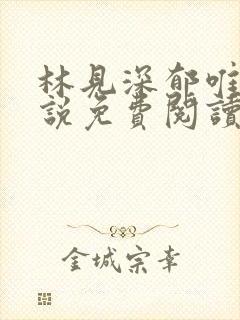 林見深郁唯
説免費閱讀
金城宗幸